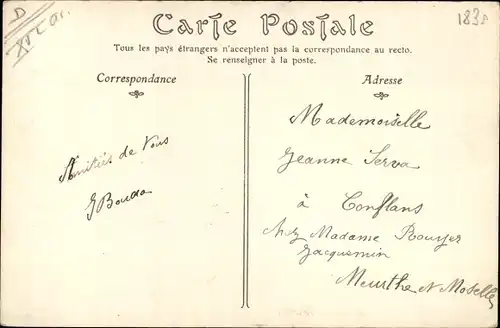 D
1838
Carte Postale
Tous les pays étrangers n'acceptent pas la correspondance au recto.
Se renseigner à la poste.
Correspondance
Amitiés de Vous
Adresse
Mademoiselle
Jeanne Serva
à Conflans
chez Madame Rouyer
Jacquemin
Meurthe et Moselle